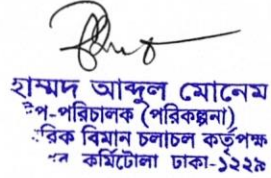 হাম্মদ আব্দুল মোনেম
প-পরিচালক (পরিকল্পনা)
রিক বিমান চলাচল কর্তৃপক্ষ
কুর্মিটোলা ঢাকা-১২২৯